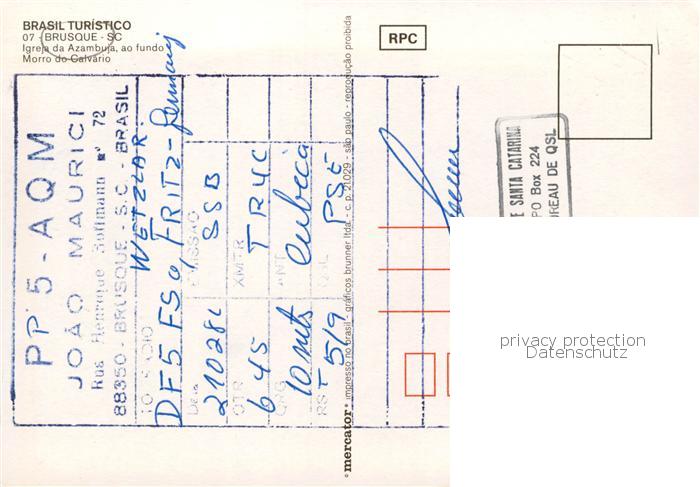 BRASIL TURÍSTICO
07 - BRUSQUE - SC
Igreja da Azambuja, ao fundo
Morro do Calvário
RPC
PP 5 - AQM
JOÃO MAURICI
Rua Henrique Hoffmann nº 72
88350 - BRUSQUE - S.C. - BRASIL
WETZLAR.
TO RADIO
DF5 FS FRITZ - Germany
Data EMISSÃO
SSB
QTR XMTR
645 TR4C
QRG ANT
10 mts Cubica
RST QSL
5/9 PSE
mercator® impresso no brasil - gráficos brunner ltda. - c. p. 21029 - são paulo - reprodução proibida
E SANTA CATARINA
PO Box 224
REAU DE QSL
privacy protection
Datenschutz